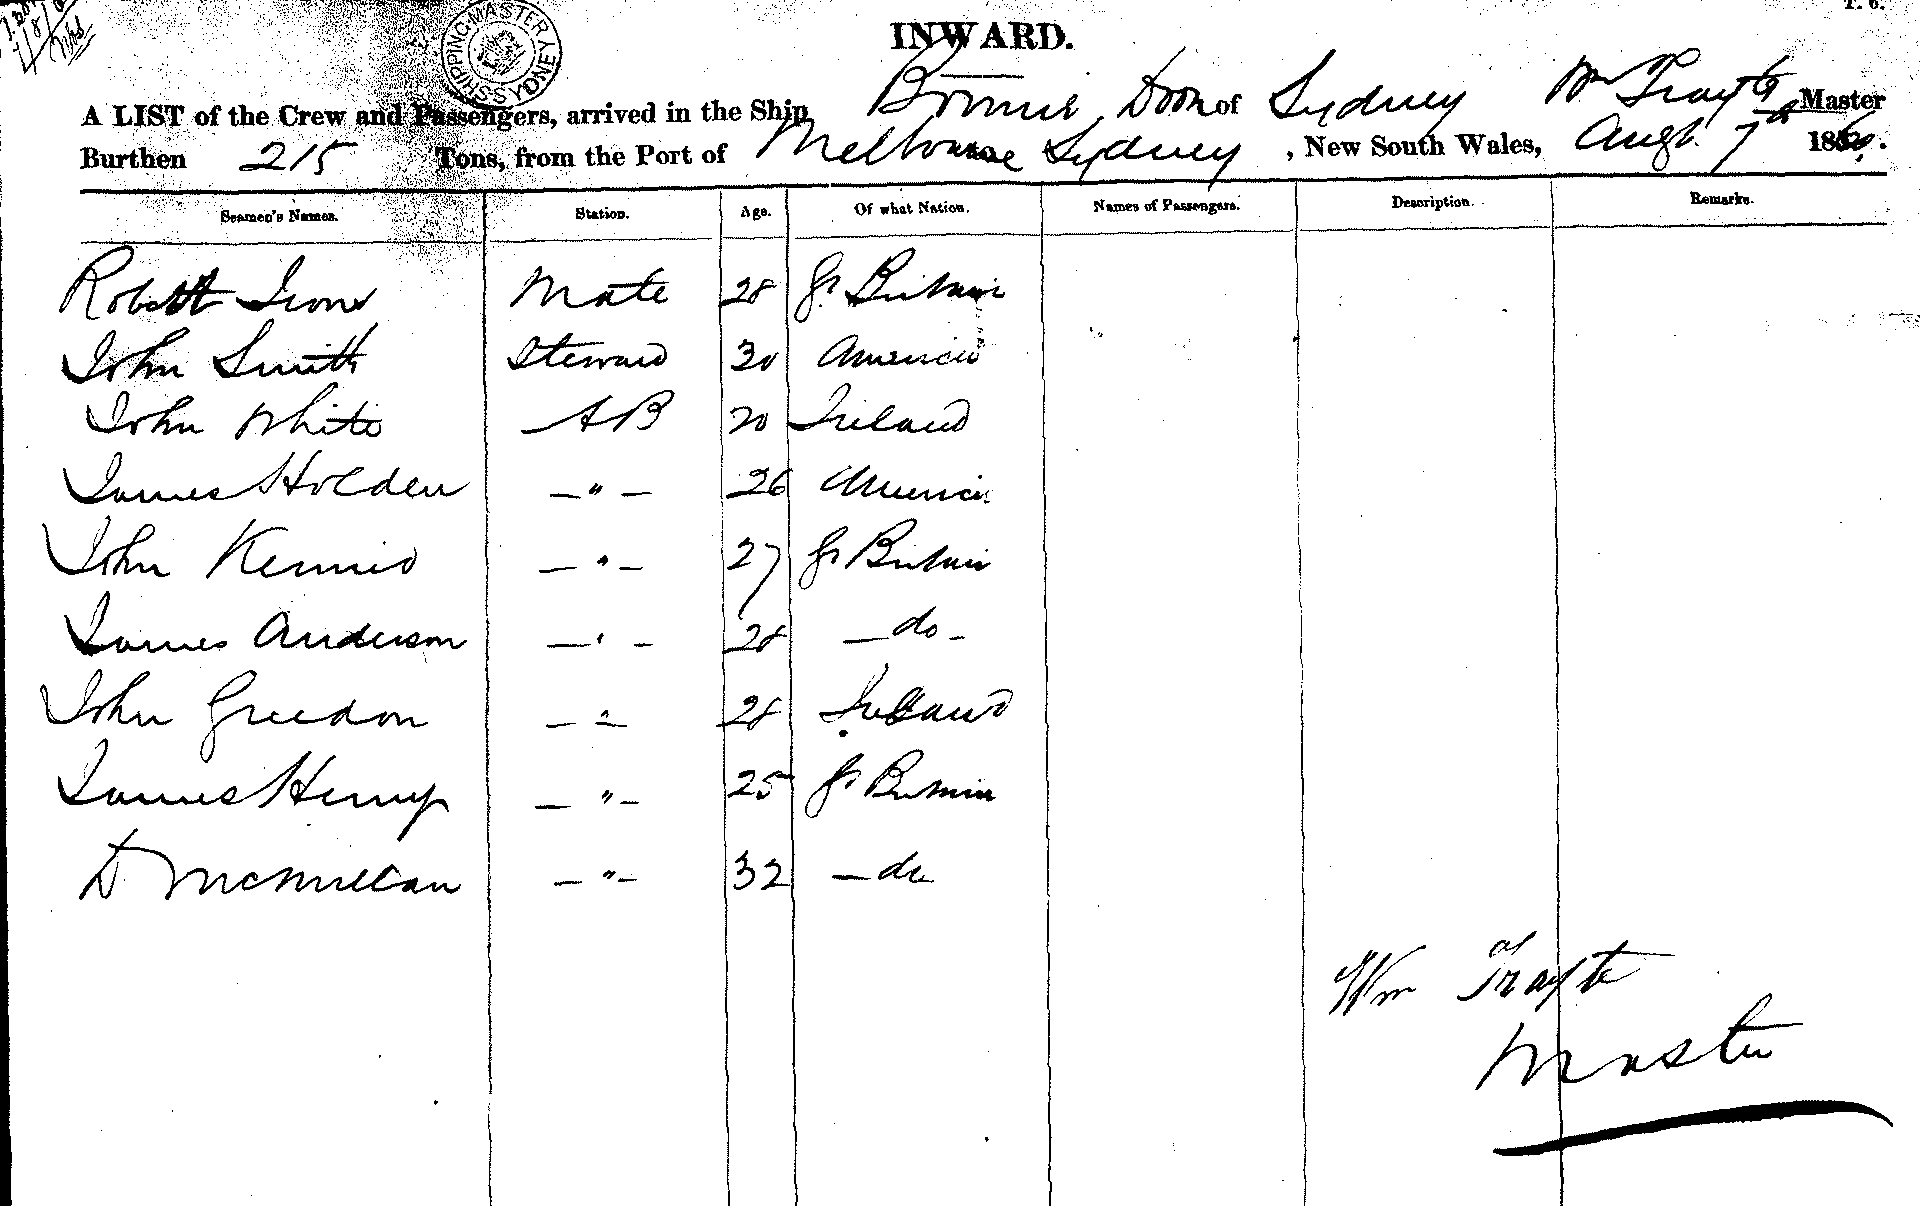 T. 6.
SHIPPING MASTER SYDNEY
INWARD.
A LIST of the Crew and Passengers, arrived in the Ship Bonnie Doon of Sydney Wm Master
Burthen 215 Tons, from the Port of Melbourne Sydney, New South Wales, Augt. 7th 186
Seamen's Names. Station. Age. Of what Nation. Names of Passengers. Description. Remarks.
Robert Mate 28 Gt Britain
John Smith Steward 30 America
John White AB 20 Ireland
James Holden — " — 26 America
John — " — 27 Gt Britain
James Anderson — " — 28 — do —
John Greedon — " — 28 Ireland
James Henry — " — 25 Gt Britain
D McMillan — " — 32 — do
Wm
Master